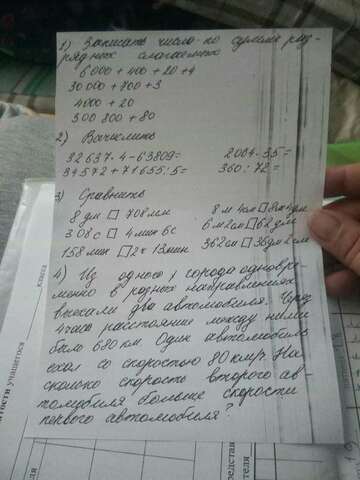 1) Записать числа по сумме раз-
рядных слагаемых
6 000 + 400 + 20 + 4
30 000 + 700 + 3
4000 + 20
300 800 + 80
2) Вычислить
32 637 · 4 - 63809 = 2004 · 35 =
34572 + 71655 : 5 = 360 : 72 =
3) Сравнить
8 дм □ 708 мм 8 м 4 см □ 8 м 4 дм
308 с □ 4 мин 6 с 6 м 2 см □ 62 дм
158 мин □ 2 ч 13 мин 362 см □ 36 дм 2 см
4) Из одного города одновре-
менно в разных направлениях
выехали два автомобиля. Через
4 часа расстояние между ними
было 680 км. Один автомобиль
ехал со скоростью 80 км/ч. На
сколько скорость второго ав-
томобиля больше скорости
первого автомобиля?
учащегося
класса